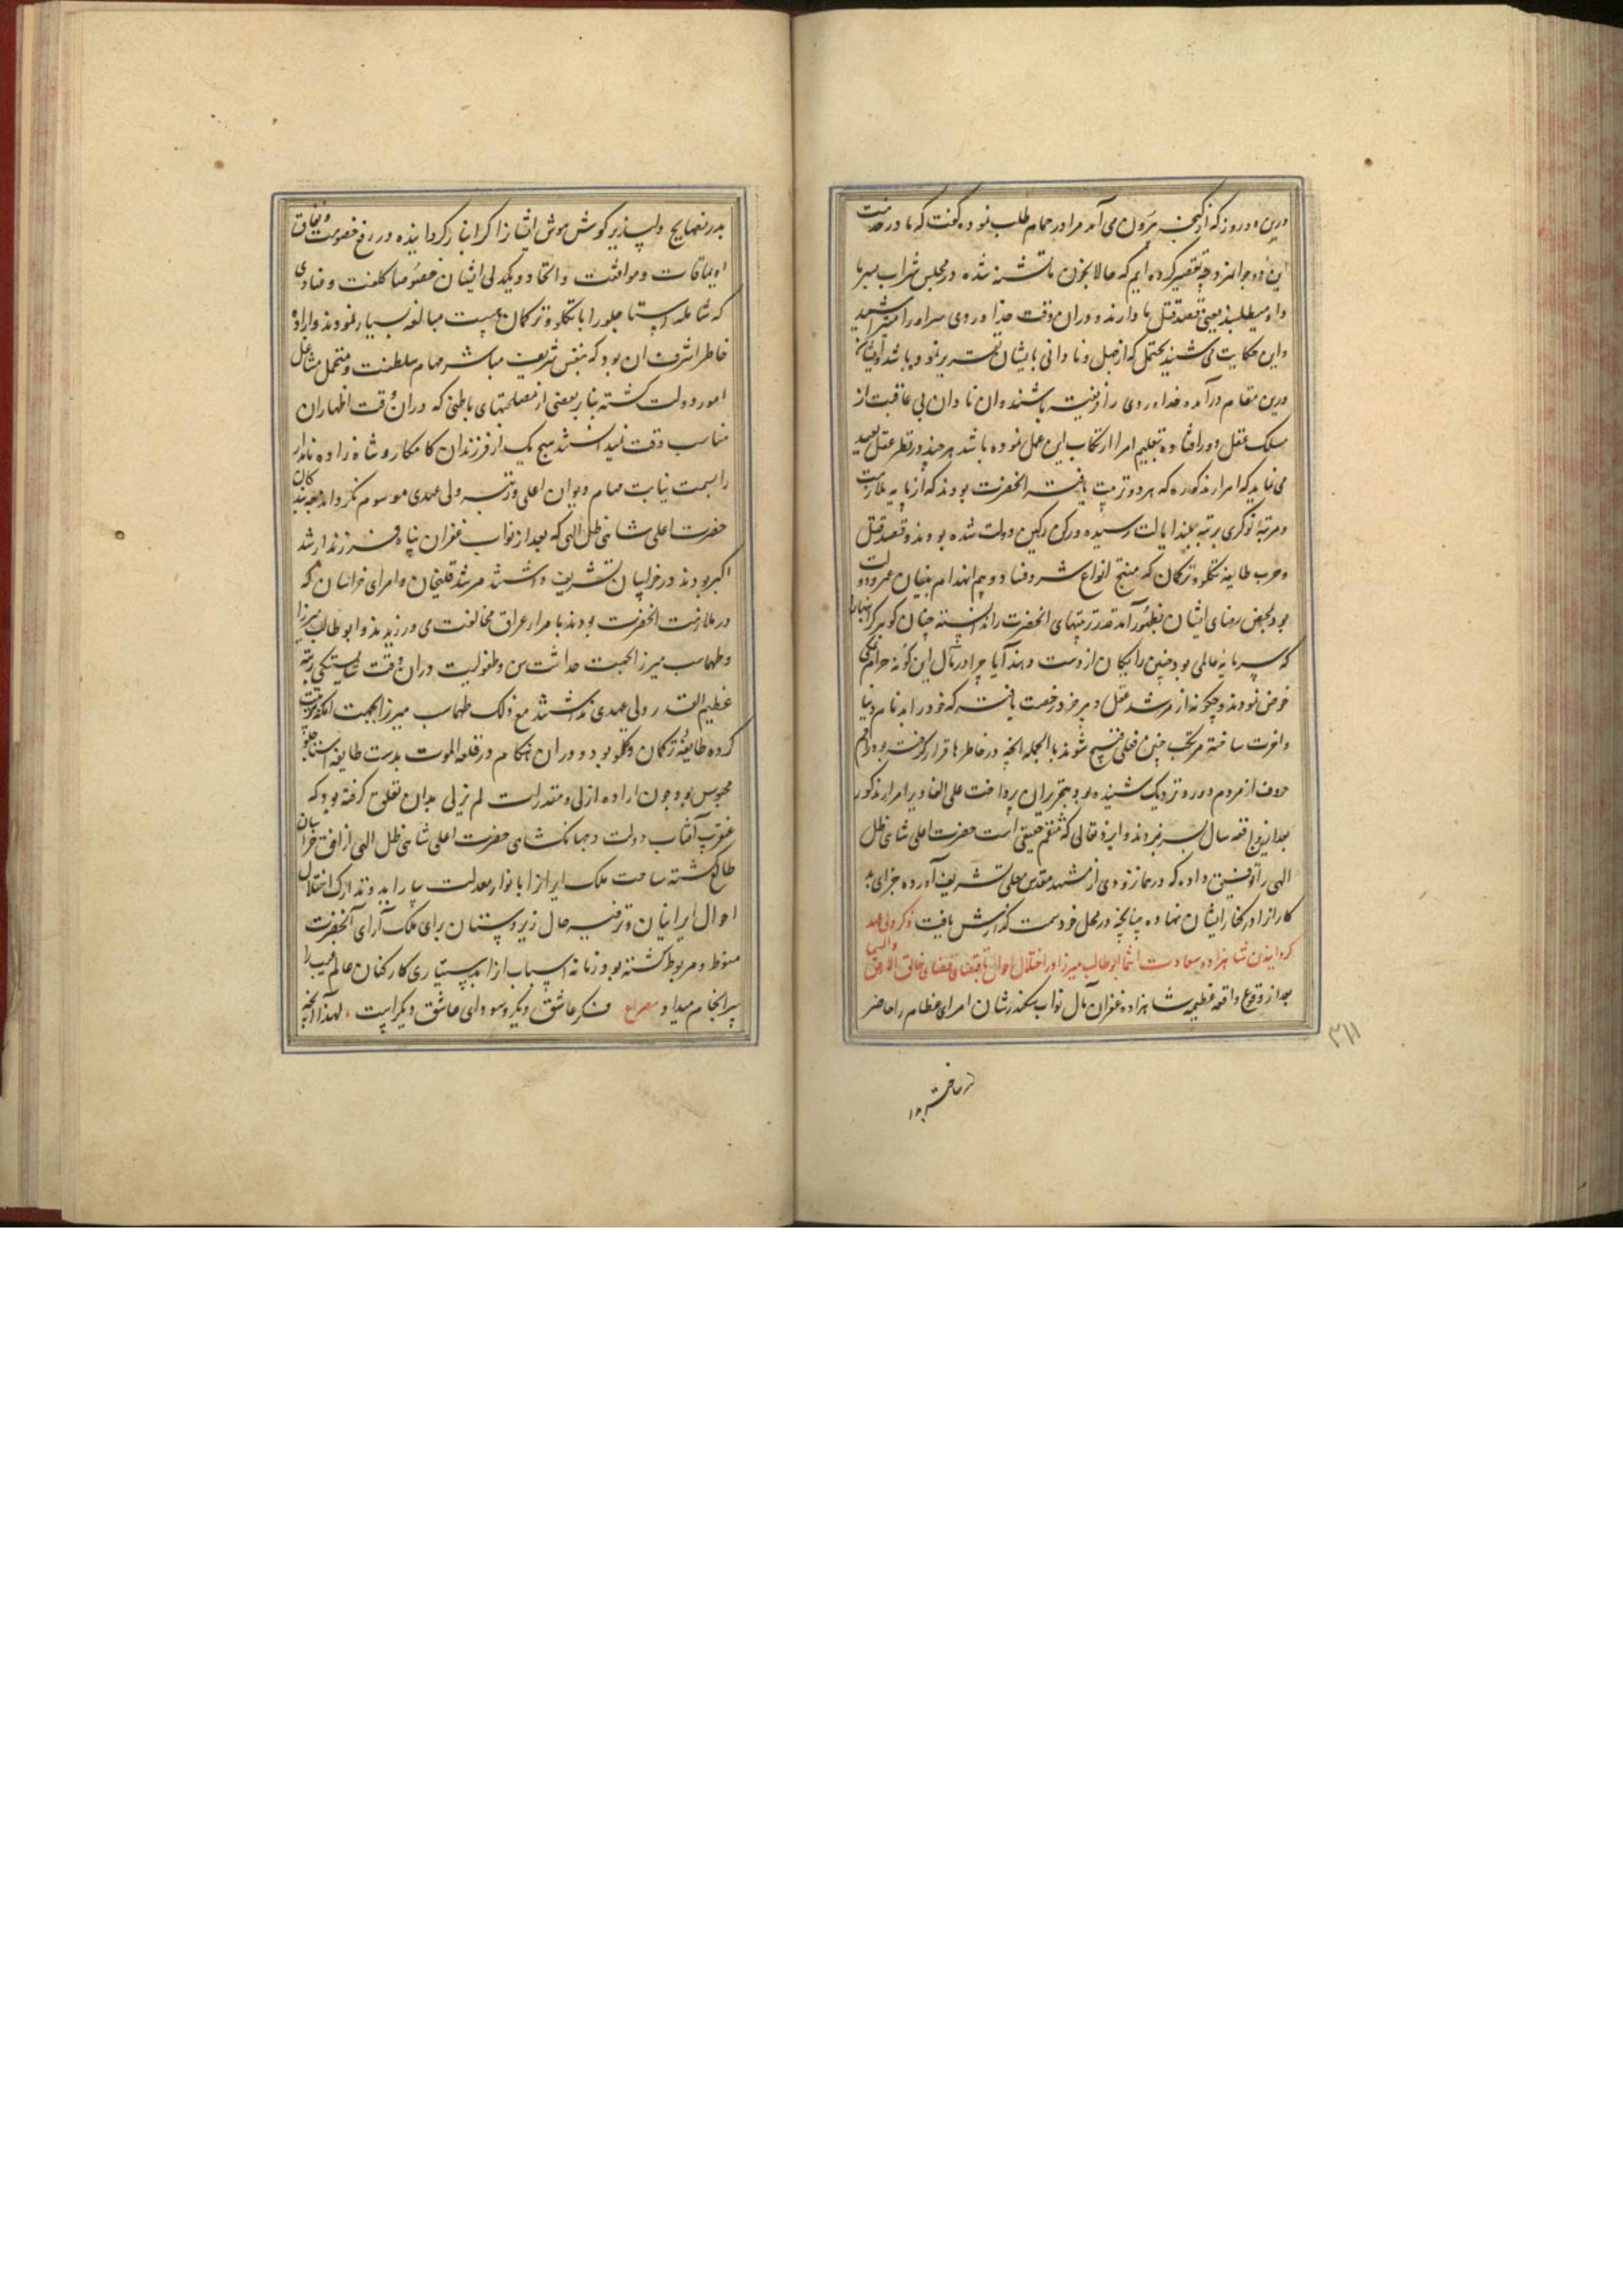 درین دو روز که از گنجه بیرون می آمد مرا در حمام طلب نموده گفت که ما در خدمت
این دو جوانمرد چه تقصیر کرده ایم که حالا بخون ما تشنه شده در مجلس شراب سر ما
داو میطلبند یعنی قصد قتل ما دارند و در ان وقت خداوردی سر او را میتراشید
و این حکایت می شنید یحتمل که از جهل و نادانی بایشان تقریر نموده باشد و ایشان
درین مقام درآمده خداوردی را فریفته باشند و ان نادان بی عاقبت از
مسلک عقل دور افتاده بتعلیم امرا ارتکاب این عمل نموده باشد هر چند در نظر عقل بعید
می نماید که امرا مذکوره که هر دو تربیت یافته انحضرت بودند که از پایه ملازمت
و مرتبه نوکری برتبه بلند ایالت رسیده و رکن رکین دولت شده بودند و قصد قتل
و حرب طایفه تکلو و ترکمان که منتج انواع شر و فساد و بیم انهدام بنیان عمر و دولت
بود بمحض رضای ایشان بظهور آمد قدر تربیتهای انحضرت را ندانسته چنان گوهر گرانبها را
که سرمایه عالمی بود چنین رایگان از دست دهند آیا چرا در قبال این گونه حرام نمکی
خوض نمودند و چگونه از مرشد عقل و پیر خرد رخصت یافته که خود را بدنام دنیا
و اخرت ساخته مرتکب چنین فعلی قبیح شوند بالجمله انچه در خاطرها قرار گرفته بود راقم
حروف از مردم دور و نزدیک شنیده بود بتحریر ان پرداخت علی القادیر امرا مذکور
بعد ازین واقعه سال بسر نبردند و ایزد تعالی که منتقم حقیقی است حضرت اعلی شاهی ظل
الهی را توفیق داده که در همان زودی از مشهد مقدس معلی تشریف آورده جزای بد
کار از در کنار ایشان نهاده چنانچه در محل خود سمت گذارش یافت ذکر ولی عهد
گردانیدن شاهزاده سعادت انتما ابوطالب میرزا و اختلال احوال باقتضای قضای خالق الارض والسما
بعد از وقوع واقعه عظیمه شاهزاده غفران مآل نواب سکندرشان امرای عظام را حاضر
۳۱۱
بدرر نصایح دلپذیر گوش هوش ایشانرا گرانبار گردانیده در رفع خصومت و نفاق
اویماقات و موافقت و اتحاد و یکدلی ایشان خصوصا کلفت و عنادی
که شاملو و استاجلو را با تکلو و ترکمان هست مبالغه بسیار نمودند و اراده
خاطر اشرف ان بود که بنفس شریف مباشر مهام سلطنت و متحمل مشاغل
امور دولت گشته بنا بر بعضی از مصلحتهای باطنی که در ان وقت اظهار ان
مناسب وقت نمیدانستند هیچ یک از فرزندان کامکار و شاه زاده نامدار
را بسمت نیابت مهام دیوان اعلی و رتبه ولی عهدی موسوم نگرداند چه بندگان
حضرت اعلی شاهی ظل الهی که بعد از نواب غفران پناه فرزند ارشد
اکبر بودند در خراسان تشریف داشتند مرشد قلیخان و امرای خراسان که
در ملازمت انحضرت بودند با مراء عراق مخالفت می ورزیدند و ابوطالب میرزا
و طهماسب میرزا بجهت حداثت سن و طفولیت در ان وقت شایستگی رتبه
عظیم القدر ولی عهدی نداشتند مع ذلک طهماسب میرزا بجهت انکه موافقت
کرده طایفه ترکمان و تکلو بود و در ان هنگام در قلعه الموت بدست طایفه استاجلو
محبوس بود و چون اراده ازلی و مقدرات لم یزلی بدان تعلق گرفته بود که
عنقریب آفتاب دولت جهانگشای حضرت اعلی شاهی ظل الهی از افق خراسان
طالع گشته ساحت ملک ایران را بانوار معدلت بیاراید و تدارک اختلال
احوال ایرانیان و ترفیه حال زیردستان برای ملک آرای آنحضرت
منوط و مربوط گشته بود زمانه اسباب انرا بدستیاری کارکنان عالم غیب را
سرانجام میداد مصراع فکر عاشق دیگر و سودای عاشق دیگر است ، لهذا انچه